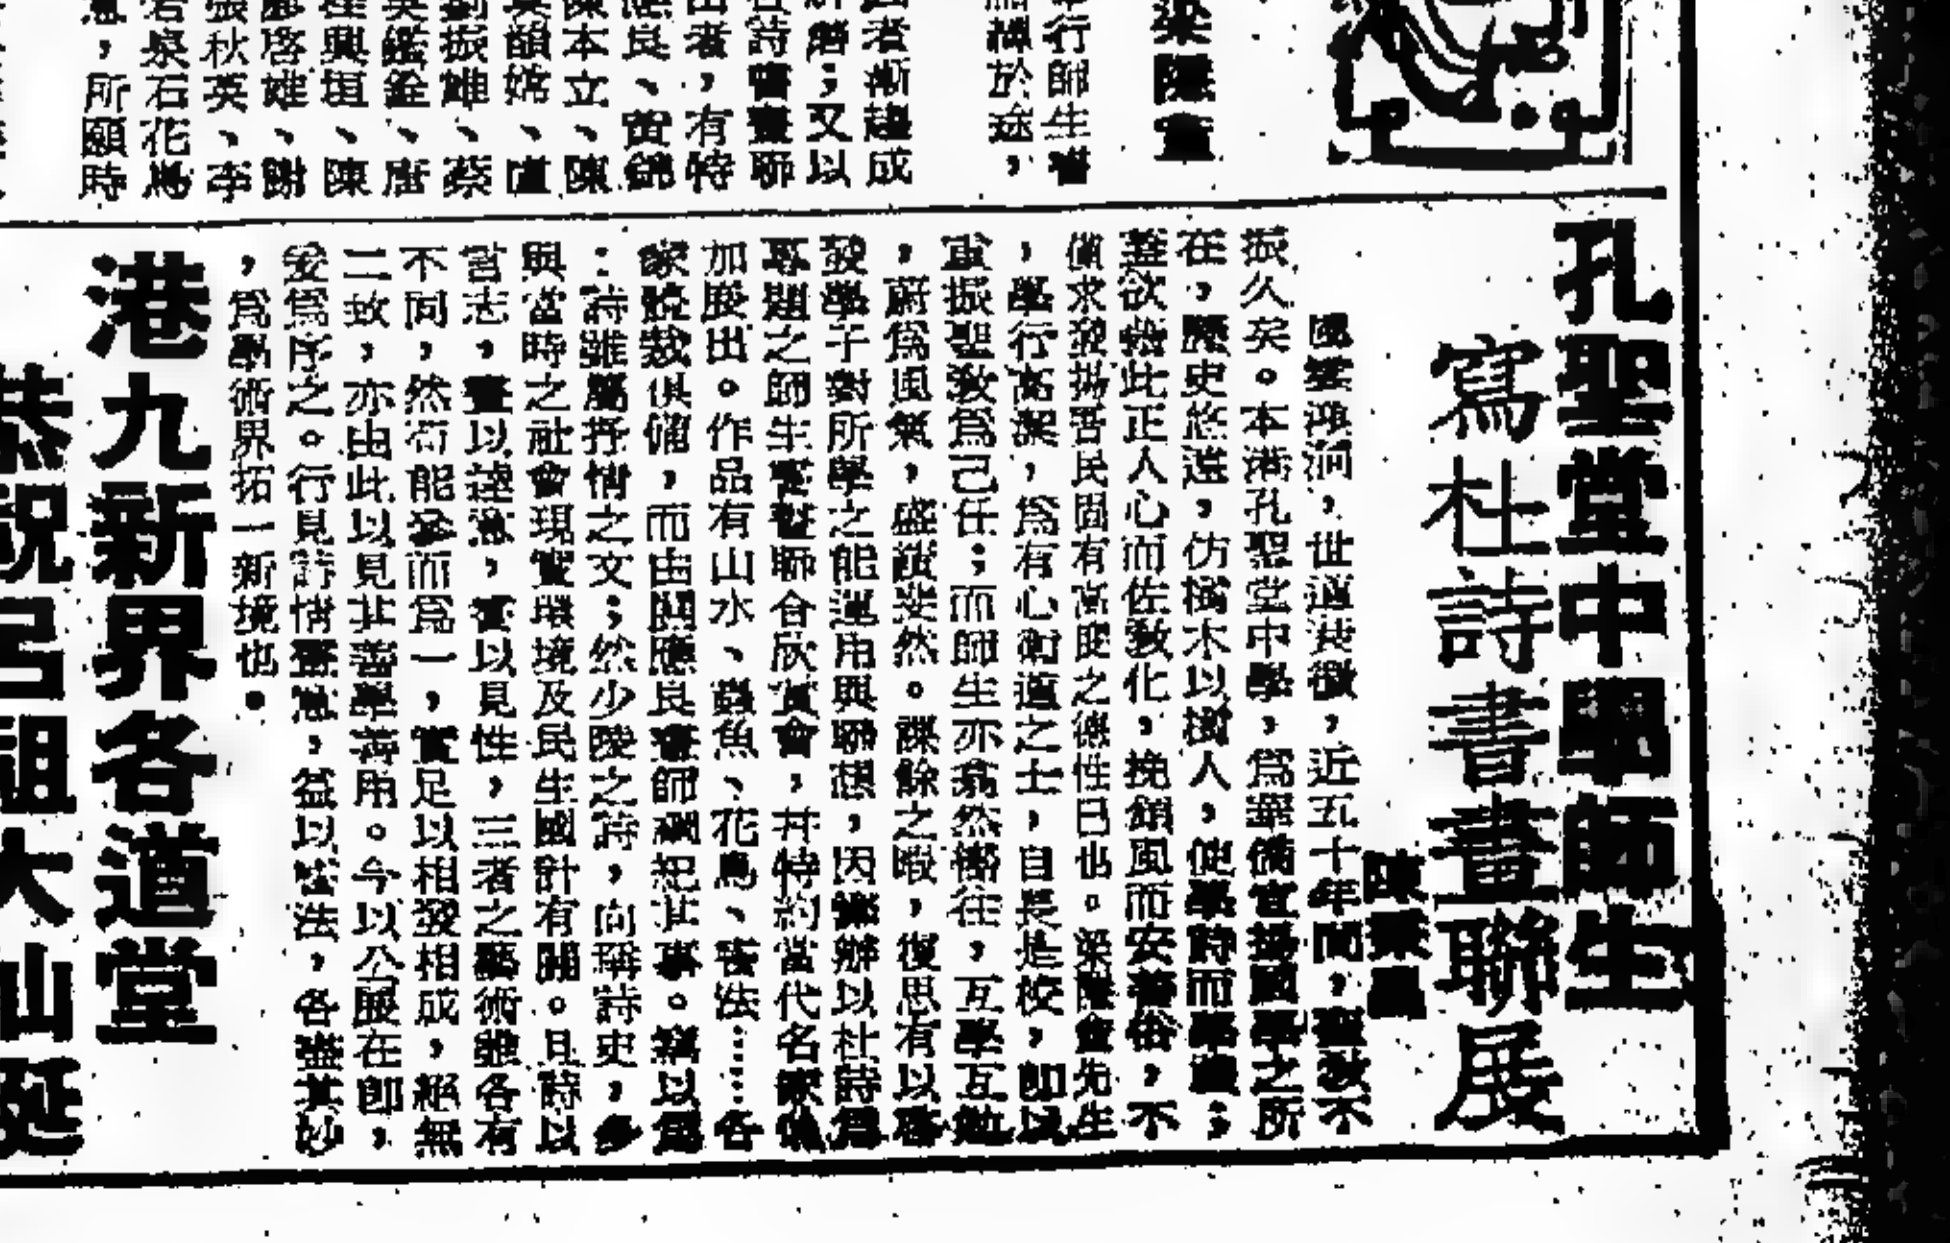 梁隱盦
舉行師生書
於途，
者漸趨成
；又以
詩書畫聯
者，有特
良、黃錦
陳本立、陳
韻嫦、盧
劉振雄、蔡
鑑銓、唐
興垣、陳
啓雄、謝
張秋英、李
若泉石花鳥
，所願時
孔聖堂中學師生
寫杜詩書畫聯展
陳秉昌
風雲鴻洞，世道莫徵，近五十年間，聖敎不
振久矣。本港孔聖堂中學，爲華僑宣揚國學之所
在，歷史悠遠，仿樹木以樹人，使學詩而學禮；
蓋欲藉此正人心而佐敎化，挽頹風而安善俗，不
僅求發揚吾民固有高度之德性已也。梁隱盦先生
，學行高潔，爲有心衛道之士，自長是校，卽以
重振聖敎爲己任；而師生亦翕然嚮往，互學互勉
，蔚爲風氣，盛譽斐然。課餘之暇，復思有以啓
發學子對所學之能運用與聯想，因籌辦以杜詩爲
專題之師生書畫聯合欣賞會，幷特約當代名家俱
加展出。作品有山水、蟲魚、花鳥、書法……各
家體裁俱備，而由關應良畫師襄理其事。竊以爲
：詩雖屬抒情之文；然少陵之詩，向稱詩史，多
與當時之社會現實環境及民生國計有關。且詩以
言志，畫以達意，書以見性，三者之藝術雖各有
不同，然苟能參而爲一，實足以相發相成，絕無
二致，亦由此以見其善學善用。今以公展在卽，
爰爲序之。行見詩情畫意，益以書法，各盡其妙
，爲學術界拓一新境也。
港九新界各道堂
恭祝呂祖大仙誕